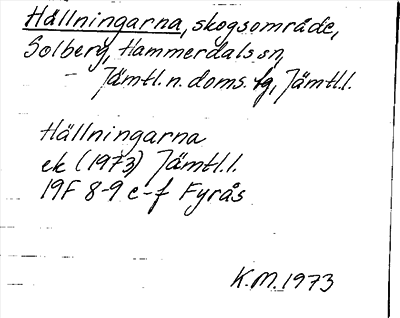 Hällningarna, skogsområde,
Solberg, Hammerdals sn,
Jämtl. n. doms. fg, Jämtl.l.
Hällningarna
ek (1973) Jämtl.l.
19F 8-9 e-f Fyrås
K.M. 1973